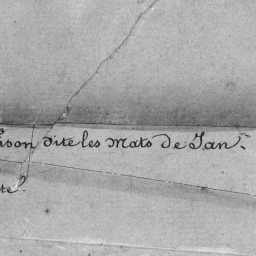 ison dite les Mats de Jan.re
te